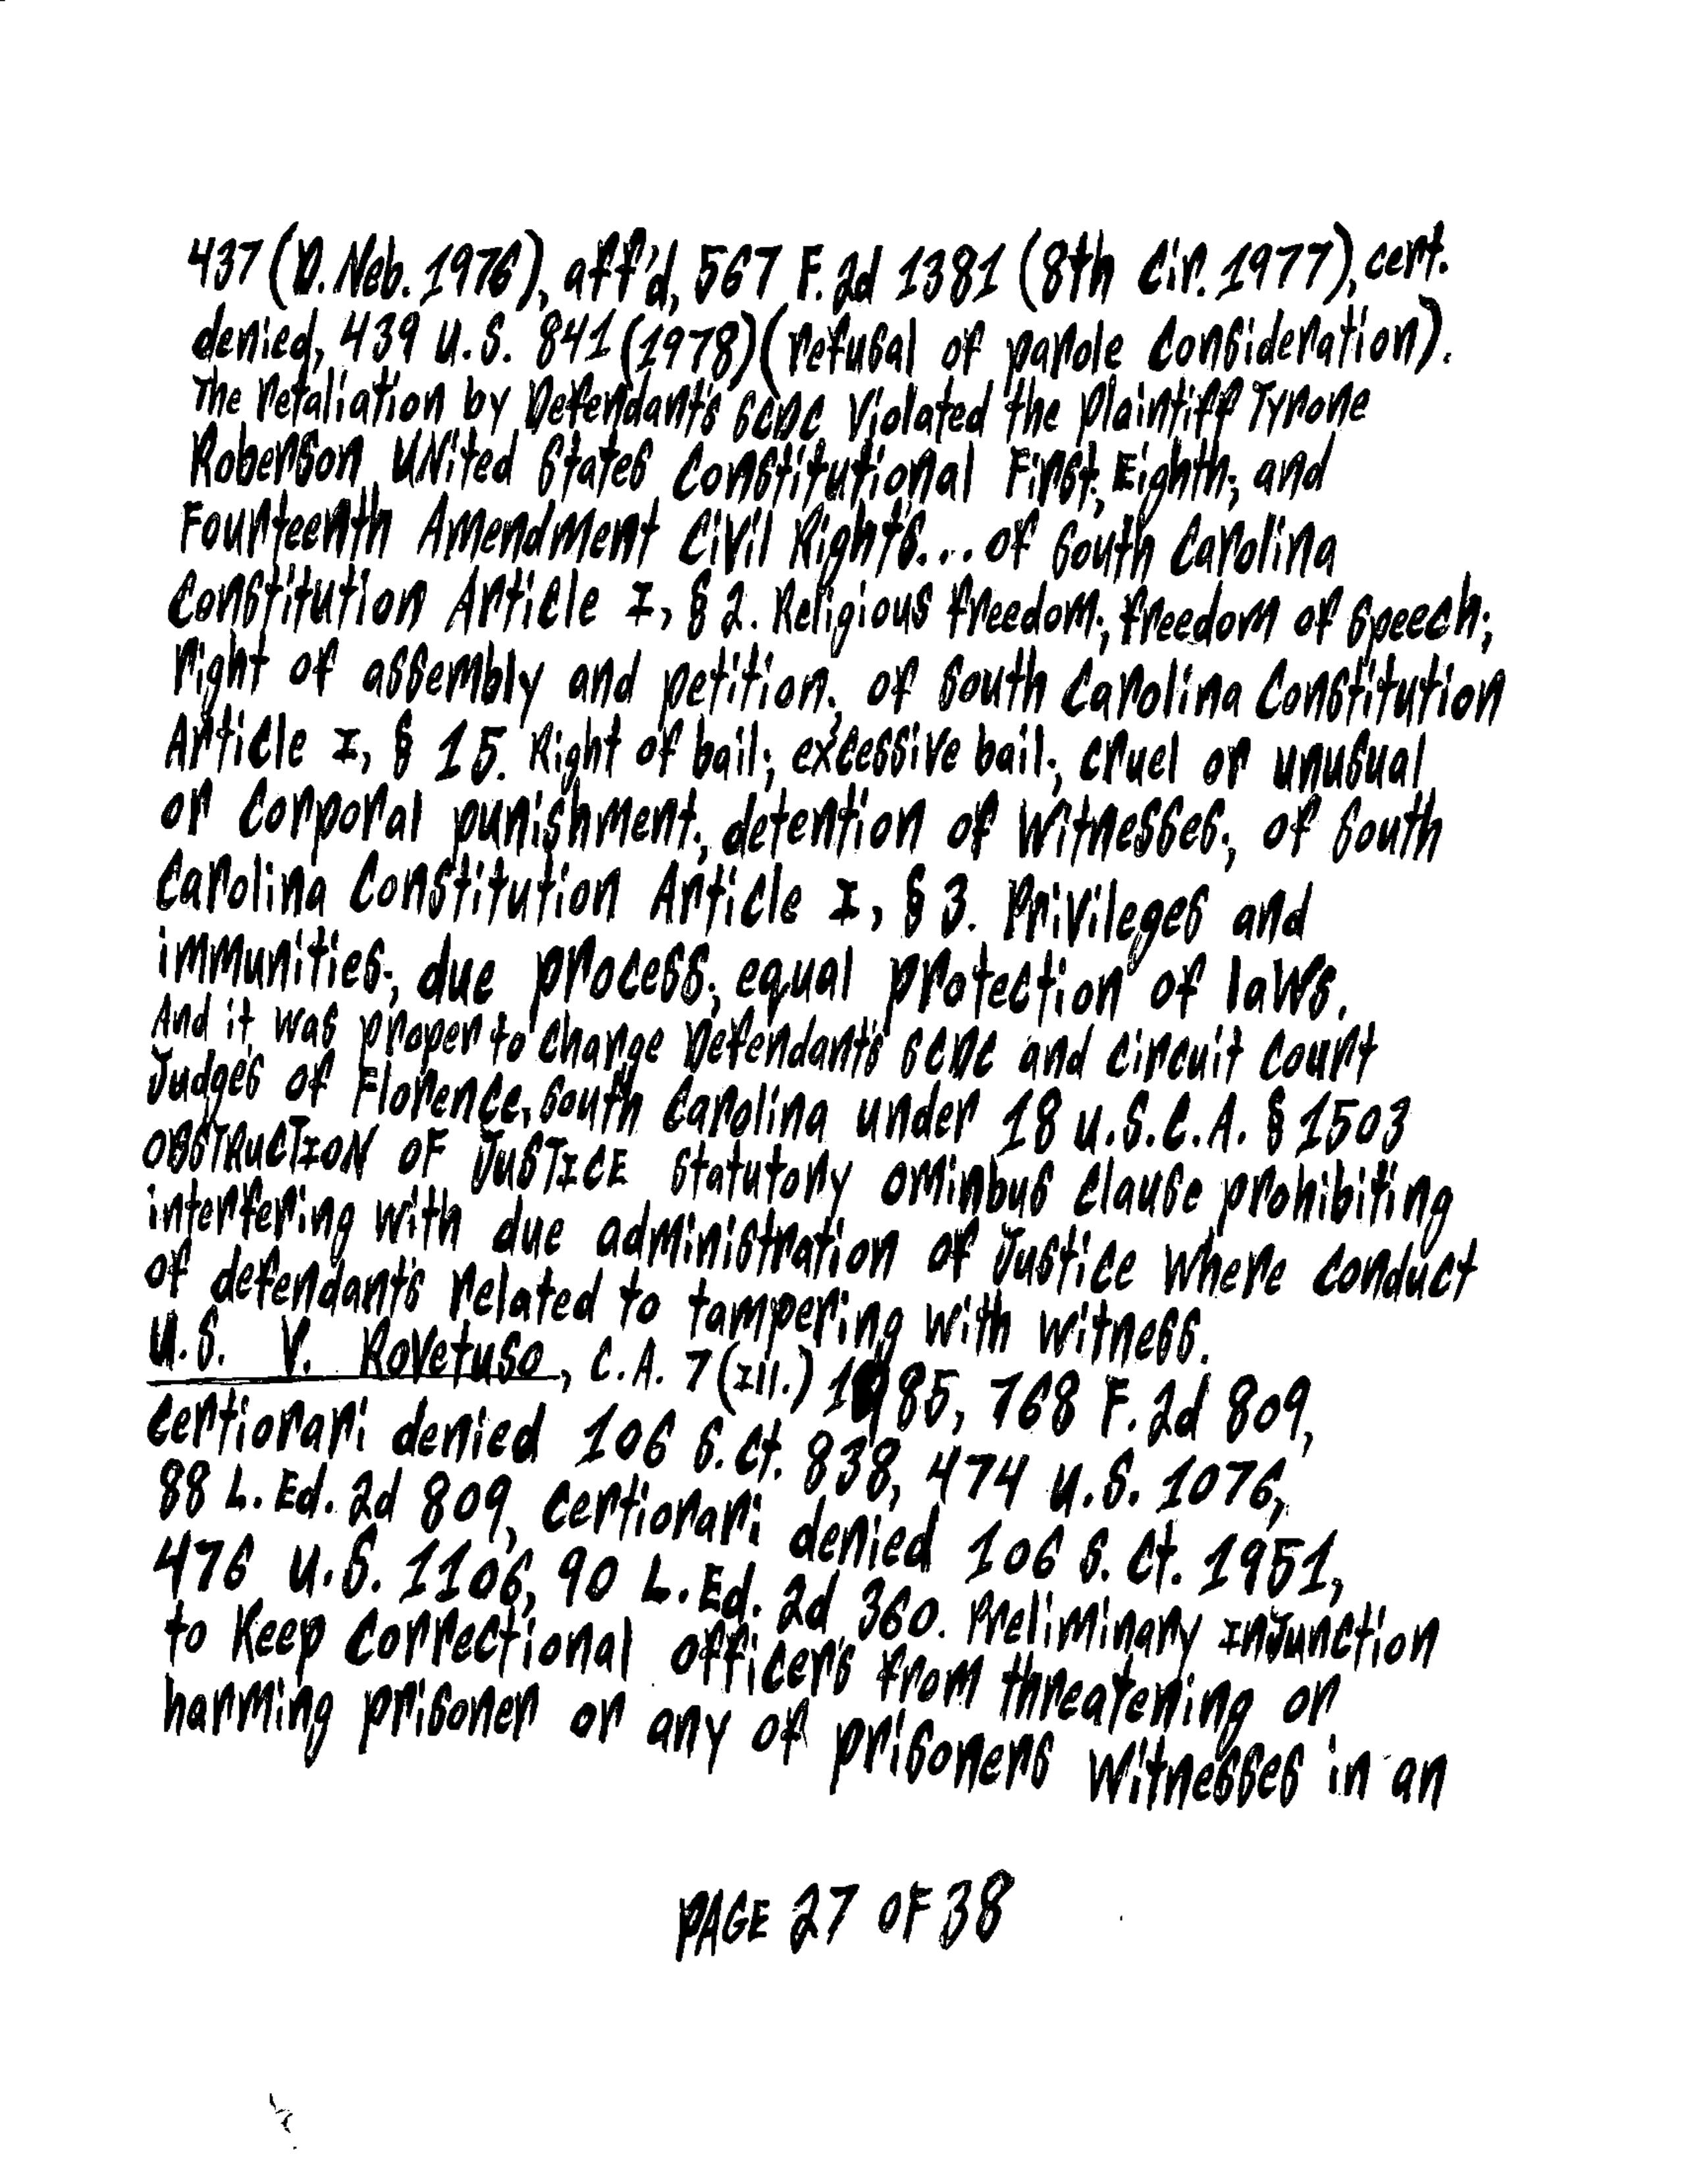 437 (D. Neb. 1976), aff'd, 567 F. 2d 1381 (8th Cir. 1977), cert.
denied, 439 U.S. 841 (1978) (refusal of parole consideration).
The retaliation by Defendant's SCDC Violated the Plaintiff Tyrone
Roberson United States Constitutional First, Eighth; and
Fourteenth Amendment Civil Right's... of South Carolina
Constitution Article I, § 2. Religious freedom; freedom of speech;
right of assembly and petition; of South Carolina Constitution
Article I, § 15. Right of bail; excessive bail; cruel or unusual
or corporal punishment; detention of witnesses; of South
Carolina Constitution Article I, § 3. Privileges and
immunities; due process; equal protection of laws.
And it was proper to charge Defendant's SCDC and circuit court
Judge's of Florence, South Carolina under 18 U.S.C.A. § 1503
OBSTRUCTION OF JUSTICE statutory ominbus clause prohibiting
interfering with due administration of Justice where conduct
of defendant's related to tampering with witness.
U.S. V. Rovetuso, C.A. 7 (Ill.) 1985, 768 F. 2d 809,
certiorari denied 106 S. Ct. 838, 474 U.S. 1076,
88 L. Ed. 2d 809, certiorari denied 106 S. Ct. 1951,
476 U.S. 1106, 90 L. Ed. 2d 360. Preliminary Injunction
to keep correctional officer's from threatening or
harming prisoner or any of prisoners witnesses in an
PAGE 27 OF 38